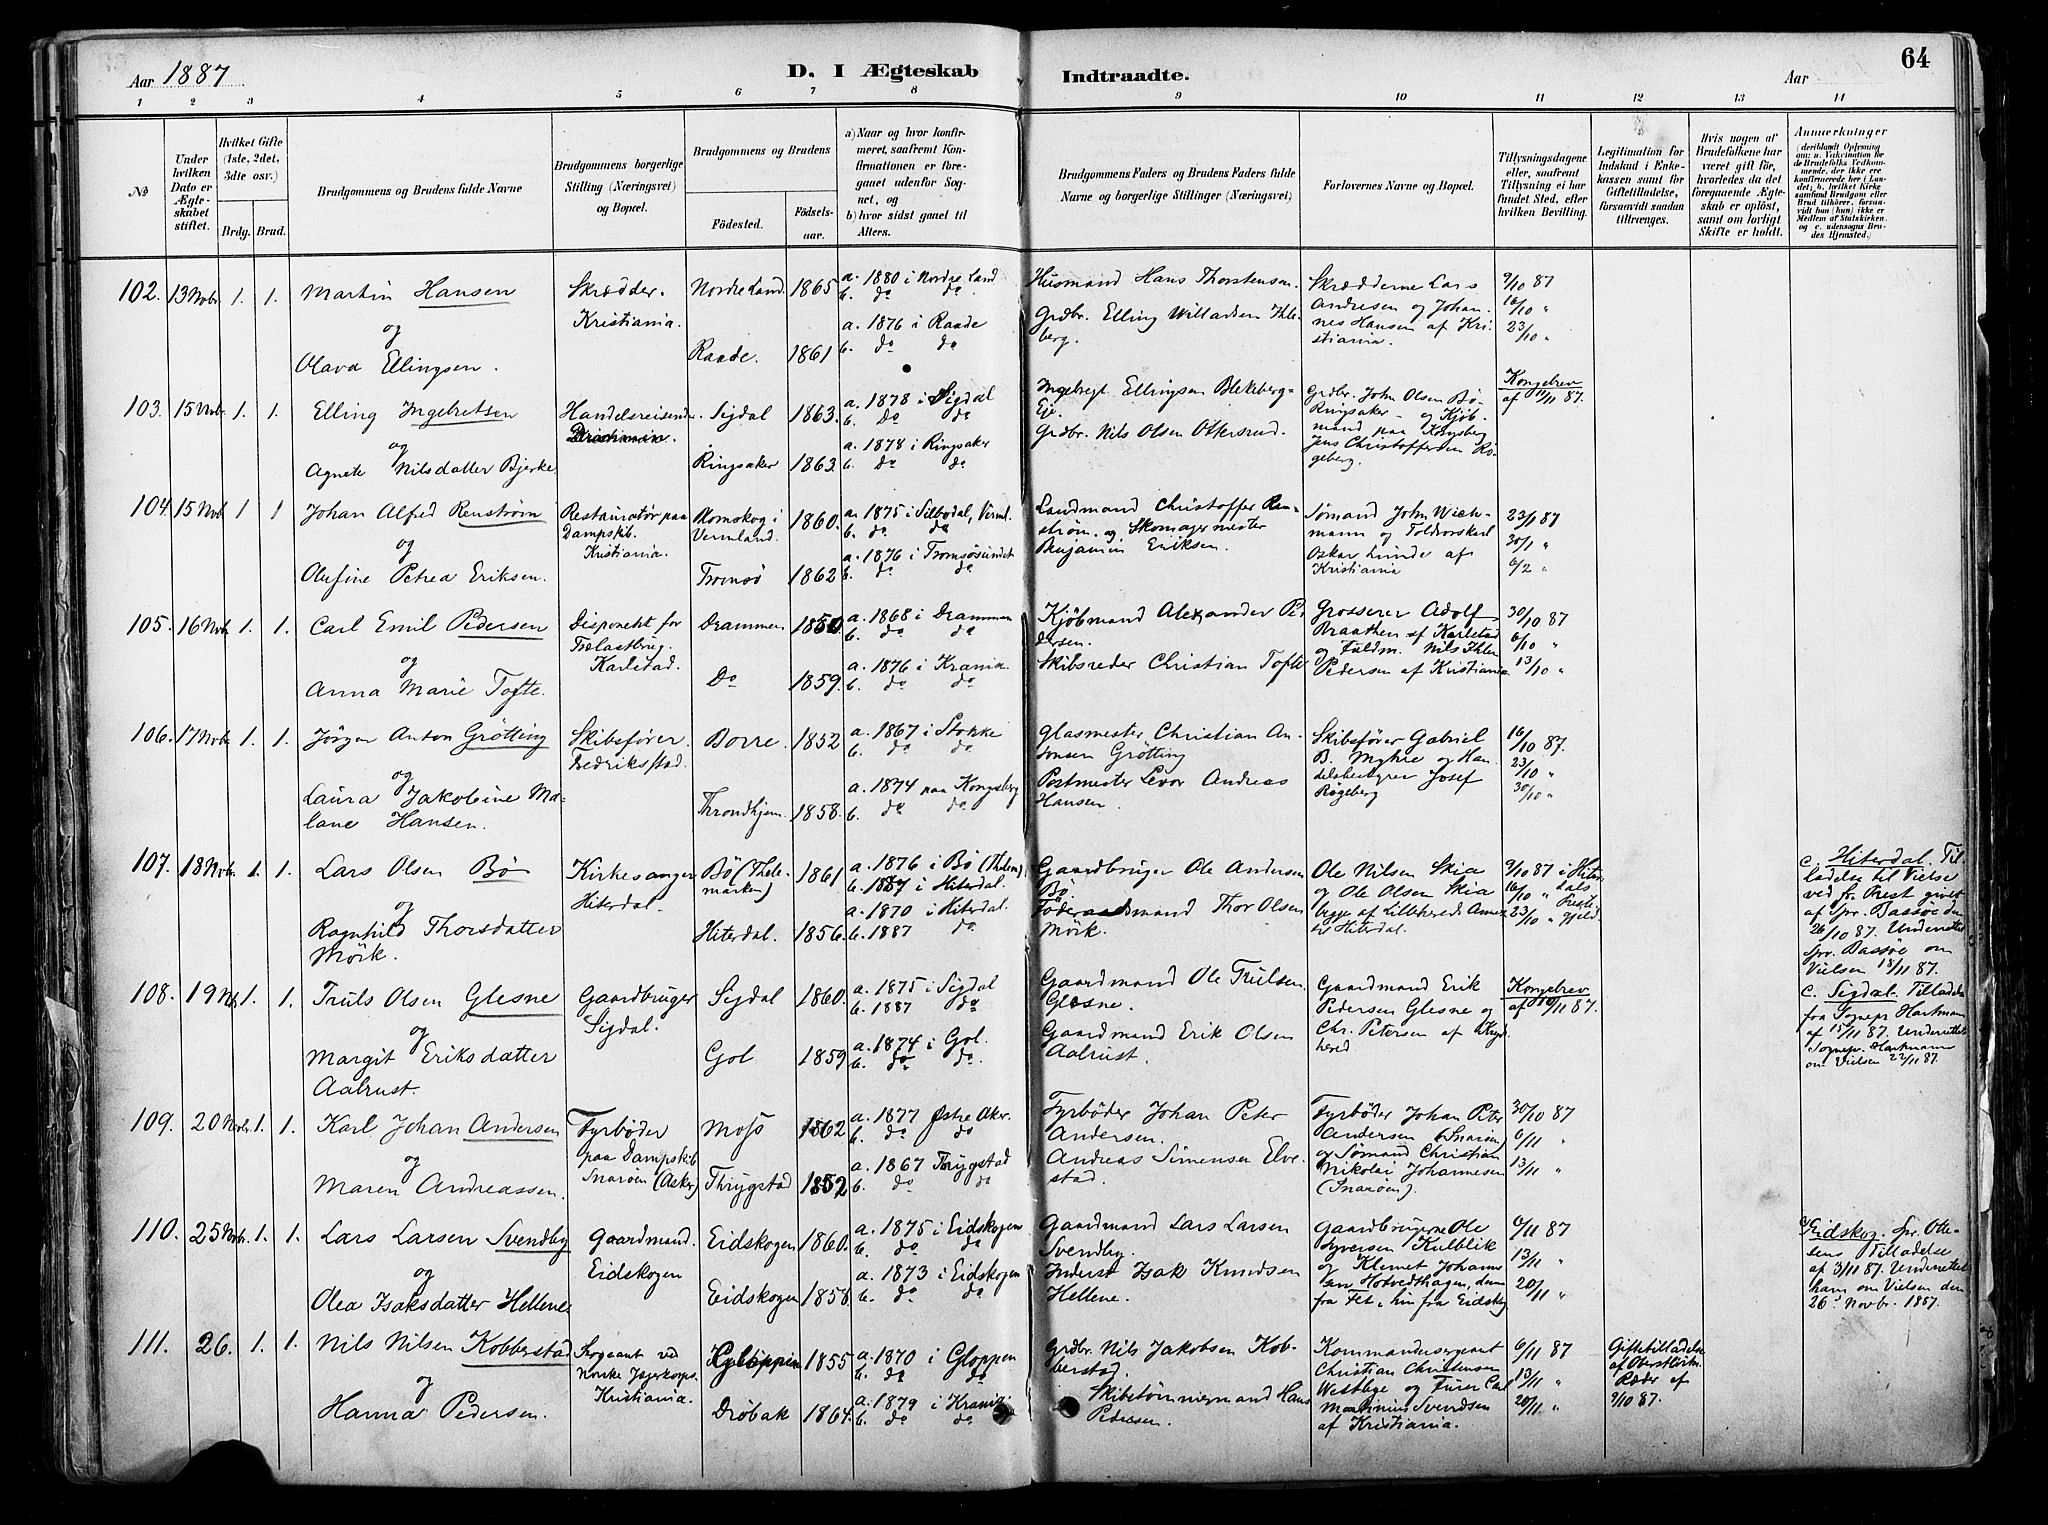 Aar 1887
D. I Ægteskab
Indtraadte.
Aar
64
1 2 3 4 5 6 7 8 9 10 11 12 13 14
№
Under hvilken Dato er Ægteskabet stiftet.
Hvilket Gifte (1ste, 2det, 3dte osv.)
Brdg. Brud.
Brudgommens og Brudens fulde Navne
Brudgommens borgerlige Stilling (Næringsvei) og Bopæl.
Brudgommens og Brudens
Fødested.
Fødselsaar.
a) Naar og hvor konfirmeret, saafremt Konfirmationen er foregaaet udenfor Sognet, og
b) hvor sidst gaaet til Alters.
Brudgommens Faders og Brudens Faders fulde Navne og borgerlige Stillinger (Næringsvei)
Forlovernes Navne og Bopæl.
Tillysningsdagene eller, saafremt Tillysning ei har fundet Sted, efter hvilken Bevilling.
Legitimation for Indskud i Enkekassen samt for Giftetilladelse, forsaavidt saadan tiltrænges.
Hvis nogen af Brudefolkene har været gift før, hvorledes da det foregaaende Ægteskab er opløst, samt om lovligt Skifte er holdt.
Anmerkninger (deriblandt Oplysning om: a. Vakcination for de Brudefolks Vedkommende, der ikke ere konfirmerede her i Landet; b. hvilket Kirkesamfund Brudgom eller Brud tilhører, forsaavidt han (hun) ikke er Medlem af Statskirken, og c. udensogns Brudes Hjemsted.)
102. 13 Novbr. 1. 1. Martin Hansen
og
Olava Ellingsen.
Skrædder.
Kristiania.
Nordre Land. 1865
Raade. 1861
a. 1880 i Nordre Land
b. do do
a. 1876 i Raade
b. do do
Husmand Hans Thorstensen.
Grdbr. Elling Willadsen
berg.
Skrædderne Lars
Andresen og Johannes
Hansen af Kristiania.
9/10 87
16/10 "
23/10 "
103. 15 Novbr. 1. 1. Elling Ingebretsen
og
Agnete Nilsdatter Bjerke
Handelsreisende.
Sigdal 1863.
Ringsaker 1863.
a. 1878 i Sigdal
b. Do do
a. 1878 i Ringsaker
b. Do do
Ingebregt Ellingsen Blekeberg-
Eje.
Grdbr. Nils Olsen Ottersrud.
Grdbr. John Olsen Bø
Ringsaker - og Kjøbmand
paa Kongsberg
Jens Christoffersen Rögeberg.
Kongebrev
af 11/11 87.
104. 15 Novbr 1 1 Johan Alfred Renström
og
Olufine Petrea Eriksen.
Restauratør paa
Dampskib.
Kristiania.
Blomskog i
Vermland. 1860.
Tromsö 1862
a. 1875 i Silbodal, Verml.
b. do do
a. 1876 i Tromsøsundet
b. do do
Landmand Christoffer Renström.
og Skomagermester
Benjamin Eriksen.
Sømand John Wichmann
og Toldvorskarl
Oskar Lunde af
Kristiania
23/1 87
30/1 "
6/2 "
105. 16 Novbr. 1. 1. Carl Emil Pedersen
og
Anna Marie Tofte.
Disponent for
Trælastbrug.
Karlstad.
Drammen 1850.
Do 1859.
a. 1868 i Drammen
b. do do
a. 1876 i Krania.
b. do do
Kjøbmand Alexander Pedersen.
Skibsreder Christian Tofte
Grosserer Adolf
Braathen af Karlstad
og Fuldm. Nils Ihlen
Pedersen af Kristiania
30/10 87
6/10 "
13/10 "
106. 17 Novbr. 1. 1. Jörgen Anton Grötting
og
Laura Jakobine Malane
Hansen.
Skibsfører.
Fredrikstad.
Borre. 1852
Throndhjem 1858.
a. 1867 i Stokke
b. do do
a. 1874 paa Kongsberg
b. do do
Glasmester Christian Antonsen
Grötting
Postmester Levor Andreas
Hansen.
Skibsfører Gabriel
B. Myhre og Handelsbestyrer
Josef
Rögeberg
16/10 87.
23/10 "
30/10 "
107. 18 Novbr. 1. 1. Lars Olsen Bø
og
Ragnhild Thorsdatter
Mörk.
Kirkesanger
Hiterdal.
Bø (Thelemarken) 1861
Hiterdal. 1856.
a. 1876 i Bø (Thelem)
b. 1887 i Hiterdal.
a. 1870 i Hiterdal.
b. 1887 do
Gaardbruger Ole Andersen
Bø.
Føderaadsmand Thor Olsen
Mörk.
Ole Nilsen Skia
og Ole Olsen Skia
begge af Lilleherad Annex
til Hiterdal.
9/10 87 i Hiter-
16/10 " dals
23/10 " Prestegjeld
c. Hiterdal. Tilladelse
til Vielse
ved fr. Prest givet
af Spr. Bassøe den
26/10 87. Underrettet
Spr. Bassøe om
Vielsen 18/11 87.
108. 19 Nvb. 1. 1. Truls Olsen Glesne
og
Margit Eriksdatter
Aalrust.
Gaardbruger
Sigdal.
Sigdal 1860.
Gol 1859
a. 1875 i Sigdal
b. 1887 do
a. 1874 i Gol.
b. do do.
Gaardmand Ole Trulsen
Glesne.
Gaardmand Erik Olsen
Aalrust.
Gaardmand Erik
Pedersen Glesne og
Chr. Petersen af Krydsherred
Kongebrev
af 10/11 87.
c. Sigdal. Tilladelse
fra Sognepr Hartmann
af 15/11 87. Underrettet
Sognepr. Hartmann
om Vielsen 22/11 87.
109. 20 Novbr. 1. 1. Karl Johan Andersen
og
Maren Andreassen.
Fyrbøder
paa Dampskib
Snarøen (Asker)
Moss 1862
Thrygstad 1852
a. 1877 Østre Aker.
b. do do
a. 1867 Thrygstad
b. do do
Fyrbøder Johan Peter
Andersen.
Andreas Simensen Elvestad.
Fyrbøder Johan Peter
Andersen (Snarøen)
og Sømand Christian
Nikolai Johannesen
(Snarøen).
30/10 87
6/11 "
13/11 "
110. 25 Novbr. 1. 1. Lars Larsen Svendby
og
Olea Isaksdatter Hellene
Gaardmand.
Eidskogen
Eidskogen 1860.
Eidskogen 1858.
a. 1875 i Eidskogen
b. do do
a. 1873 i Eidskogen
b. do do
Gaardmand Lars Larsen
Svendby.
Inderst Isak Knudsen
Hellene.
Gaardbrugerne Ole
Syversen Kulblik
og Klemet Johannesen
Hotvedthagen, denne
fra Fet, hin fra Eidskog
6/11 87
13/11 "
20/11 "
c. Eidskog. Spr. Ottesens
Tilladelse
af 3/11 87. Underrettet
ham om Vielsen den
26 Novbr. 1887.
111. 26. 1. 1. Nils Nilsen Kobberstad
og
Hanna Pedersen.
Sergeant ved
Norske Jægerkorps.
Kristiania.
Gloppen 1855
Drøbak 1864.
a. 1870 i Gloppen
b. do do
a. 1879 i Krania
b. do do
Grdbr. Nils Jakobsen Kobberstad.
Skibstømmermand Hans
Pedersen.
Kommandersergeant
Christian Christensen
Westbye og Furer Carl
Martinius Svendsen
af Kristiania.
6/11 87
13/11 "
20/11 "
Giftetilladelse
af Oberstløitn.
Ræder af
9/10 87.